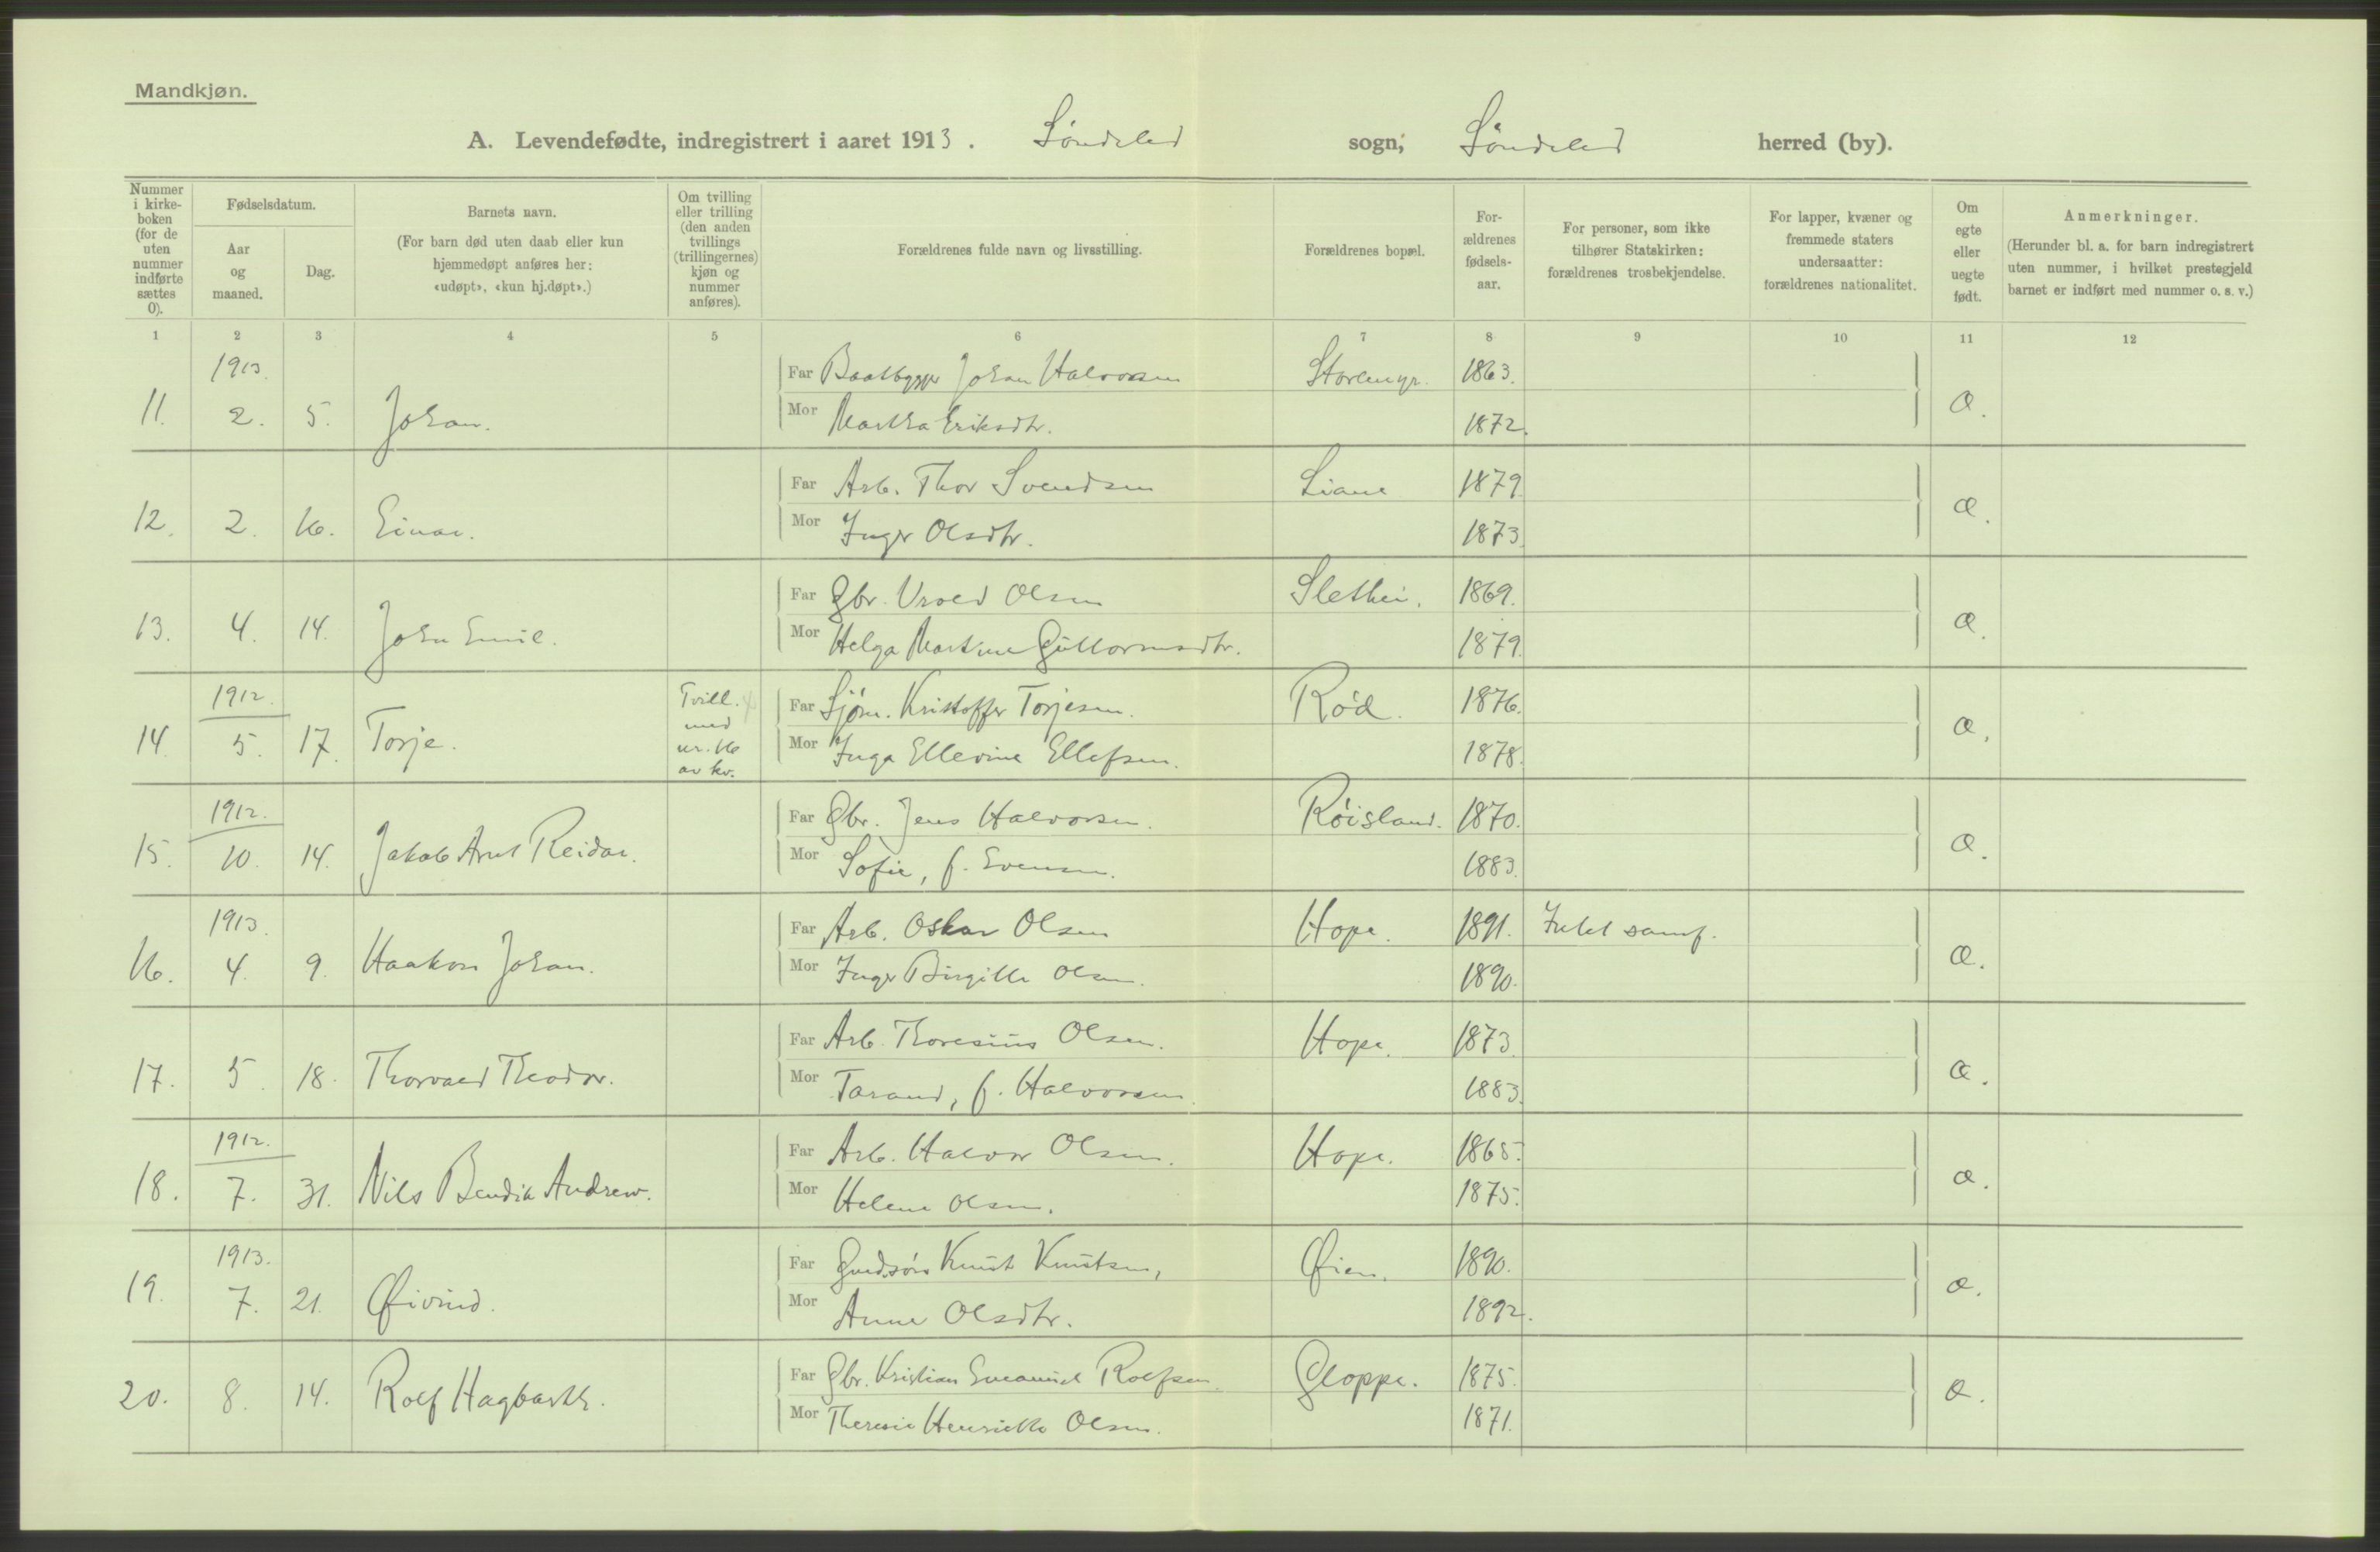 Mandkjøn.
A. Levendefødte, indregistrert i aaret 1913. Søndeled sogn; Søndeled herred (by).
Nummer i kirke-boken (for de uten nummer indførte sættes 0).
Fødselsdatum.
Aar og maaned.
Dag.
Barnets navn.
(For barn død uten daab eller kun hjemmedøpt anføres her: «udøpt», «kun hj.døpt».)
Om tvilling eller trilling (den anden tvillings (trillingernes) kjøn og nummer anføres).
Forældrenes fulde navn og livsstilling.
Forældrenes bopæl.
For-ældrenes fødsels-aar.
For personer, som ikke tilhører Statskirken: forældrenes trosbekjendelse.
For lapper, kvæner og fremmede staters undersaatter: forældrenes nationalitet.
Om egte eller uegte født.
Anmerkninger.
(Herunder bl. a. for barn indregistrert uten nummer, i hvilket prestegjeld barnet er indført med nummer o. s. v.)
1 2 3 4 5 6 7 8 9 10 11 12
1913.
Far Baatbygger Johan Halvorsen Storemyr. 1863.
11. 2. 5. Johan. Æ.
Mor Martha Eriksdtr. 1872.
Far Arb. Thor Svendsen Liane 1879.
12. 2. 16. Einar. Æ.
Mor Inger Olsdtr. 1873.
Far Gbr. Vrold Olsen Slethei. 1869.
13. 4. 14. John Emil. Æ.
Mor Helga Martine Guttormsdtr. 1879.
1912. Tvill. med nr. 16 av kv.
Far Sjøm. Kristoffer Torjesen. Rød. 1876.
14. 5. 17. Torje. Æ.
Mor Inga Ellevine Ellefsen. 1878.
1912.
Far Gbr. Jens Halvorsen. Røisland. 1870.
15. 10. 14. Jakob Arnt Reidar. Æ.
Mor Sofie, f. Evensen. 1883.
1913.
Far Arb. Oskar Olsen Hope. 1891. Intet samf.
16. 4. 9. Haakon Johan. Æ.
Mor Inger Birgitte Olsen. 1890.
Far Arb. Thoresius Olsen. Hope. 1873.
17. 5. 18. Thorvald Theodor. Æ.
Mor Tarand, f. Halvorsen. 1883.
1912.
Far Arb. Halvor Olsen. Hope. 1865.
18. 7. 31. Nils Bendik Andrew. Æ.
Mor Helene Olsen. 1875.
1913.
Far Gaards. Knut Knutsen, Øien. 1890.
19. 7. 21. Øivind. Æ.
Mor Anne Olsdtr. 1892.
Far Gbr. Kristian Emanuel Rolfsen. Gloppe. 1875.
20. 8. 14. Rolf Hagbarth. Æ.
Mor Theresie Henriette Olsen. 1871.